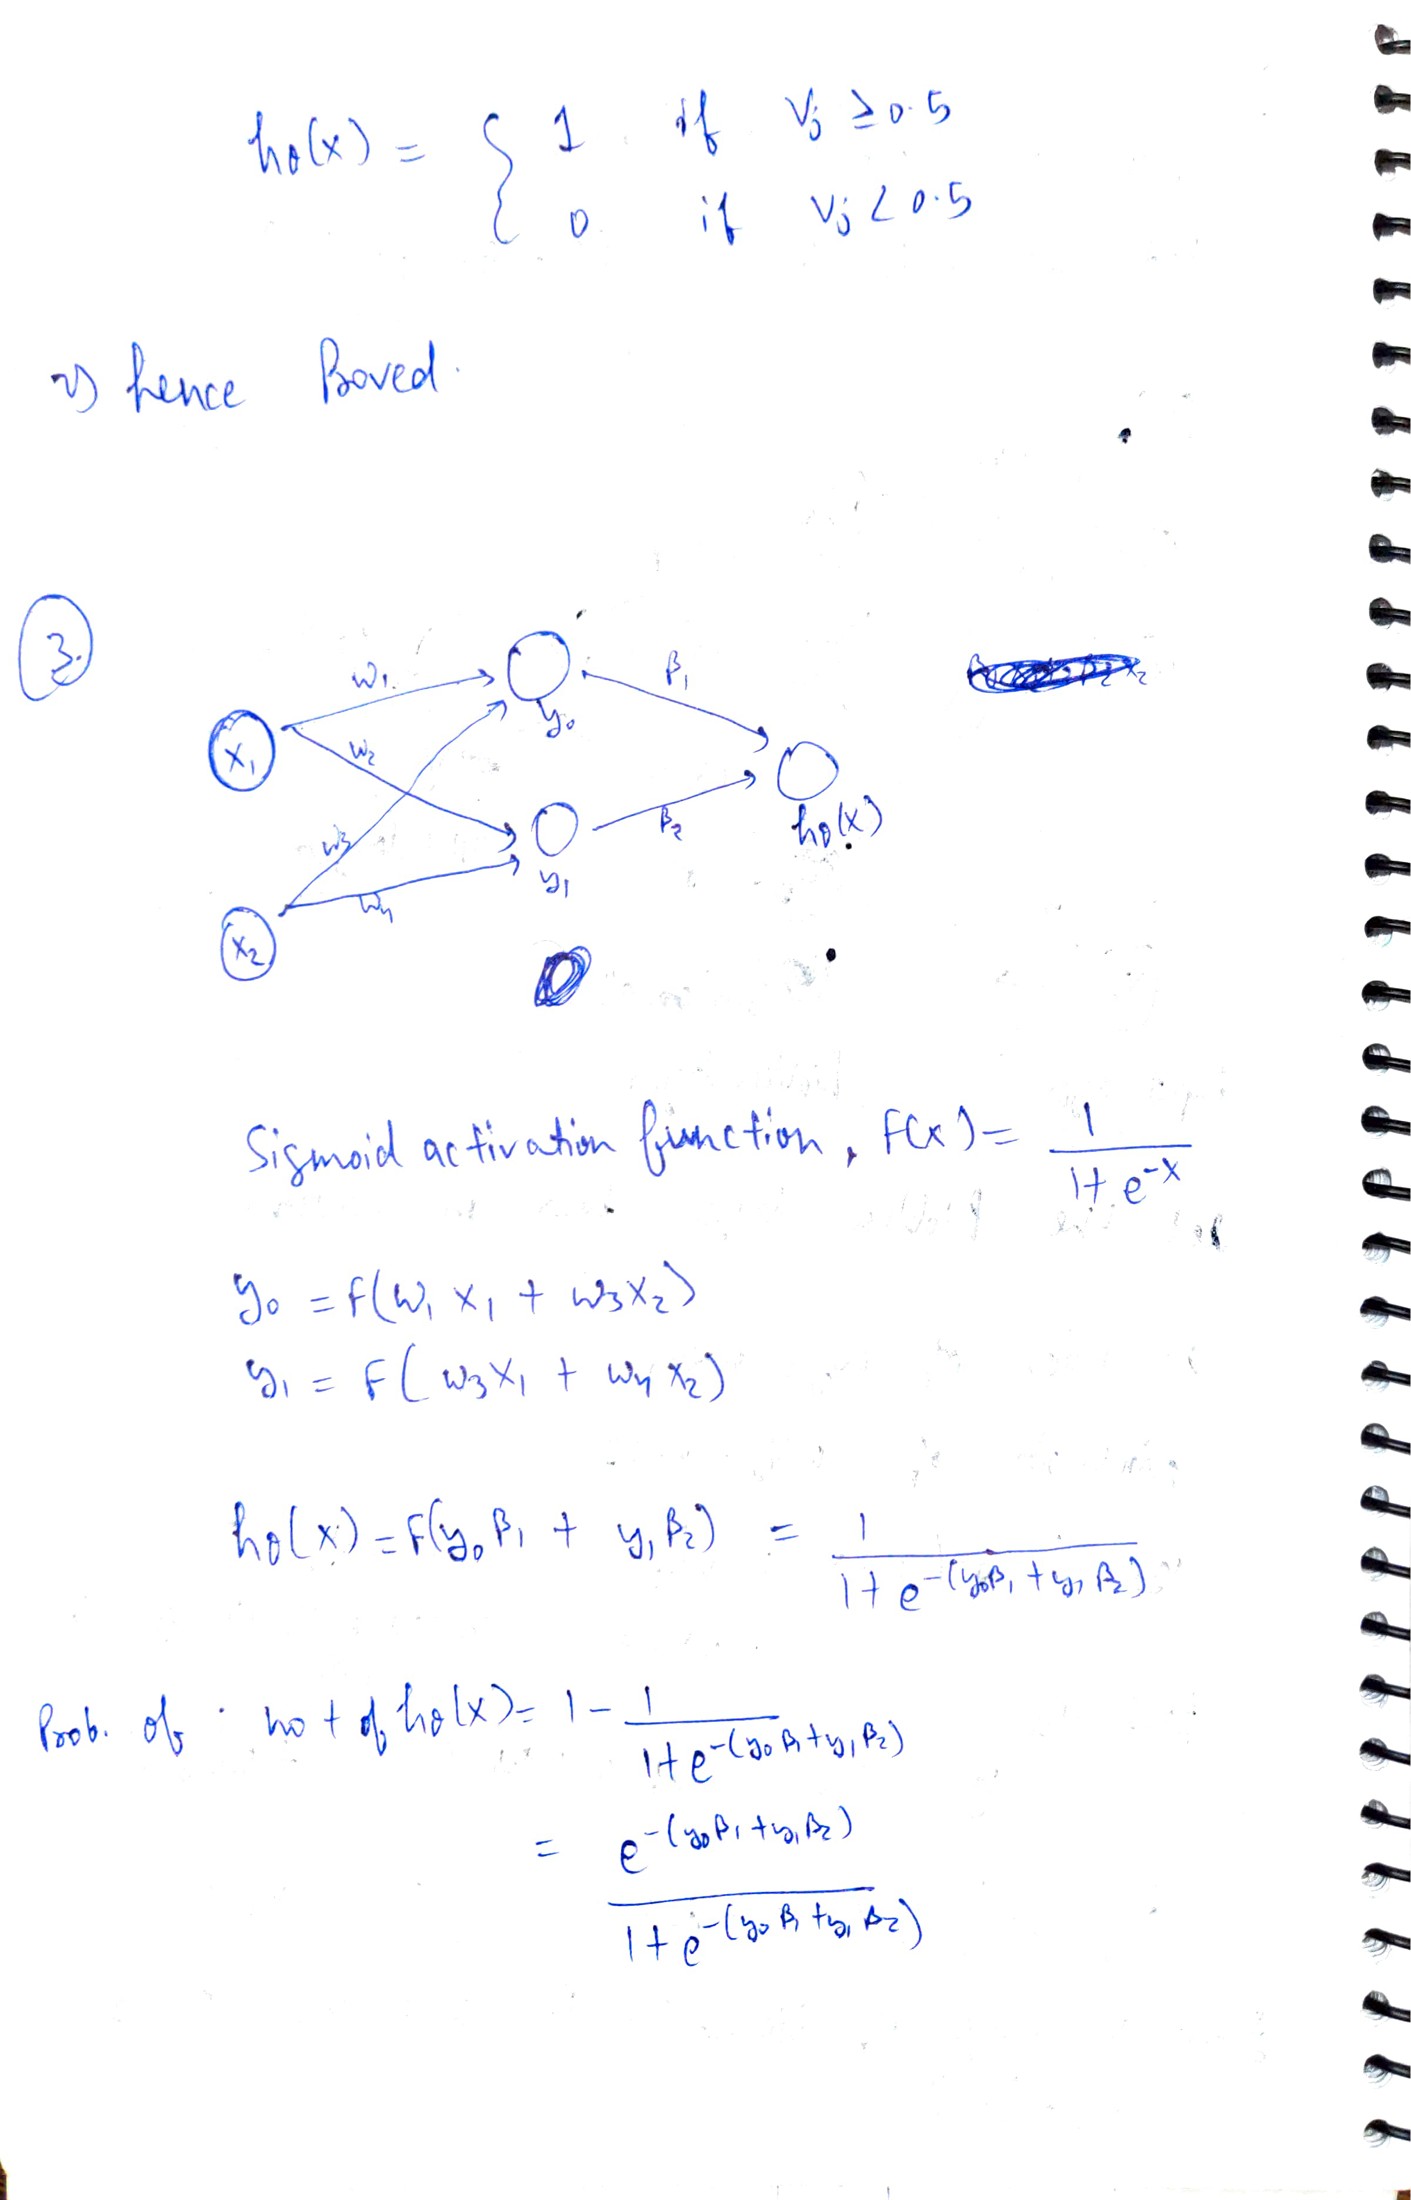 hθ(x) = { 1 if Vj ≥ 0.5
0 if Vj < 0.5
=> hence Proved.
3.
W1. β1
y0
X1 W2
W3 β2 hθ(X)
y1
W4
X2
Sigmoid activation function, F(x) = 1 / (1 + e^-x)
y0 = F(W1 X1 + W3 X2)
y1 = F(W3 X1 + W4 X2)
hθ(x) = F(y0 β1 + y1 β2) = 1 / (1 + e^-(y0β1 + y1 β2))
Prob. of not of hθ(x) = 1 - 1 / (1 + e^-(y0 β1 + y1 β2))
= e^-(y0 β1 + y1 β2) / (1 + e^-(y0 β1 + y1 β2))